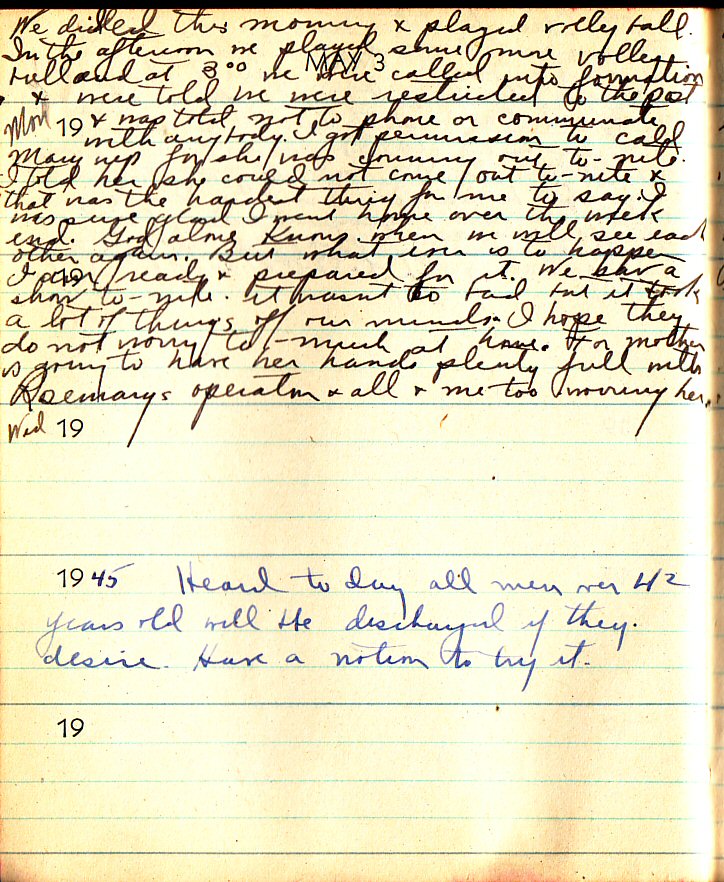 We drilled this morning & played volley ball.
In the afternoon we played some more volley
MAY 3
ball and at 3:00 we were called into formation
& were told we were restricted to the post
Mon 19 & was told not to phone or communate
with anybody. I got permission to call
Mary up for she was comming out to-nite.
I told her she could not come out to-nite &
that was the hardest thing for me to say. I
was sure glad I went home over the week
end. God alone knows when we will see each
other again. But what ever is to happen
19 I am ready & prepared for it. We saw a
show to-nite. it wasnt to bad but it took
a lot of things off our minds. I hope they
do not worry to-much at home. For mother
is going to have her hands plenty full with
Rosemarys operation & all & me too worring her.
Wed 19
1945 Heard to day all men over 42
years old will be discharged if they
desire. Have a notion to try it.
19